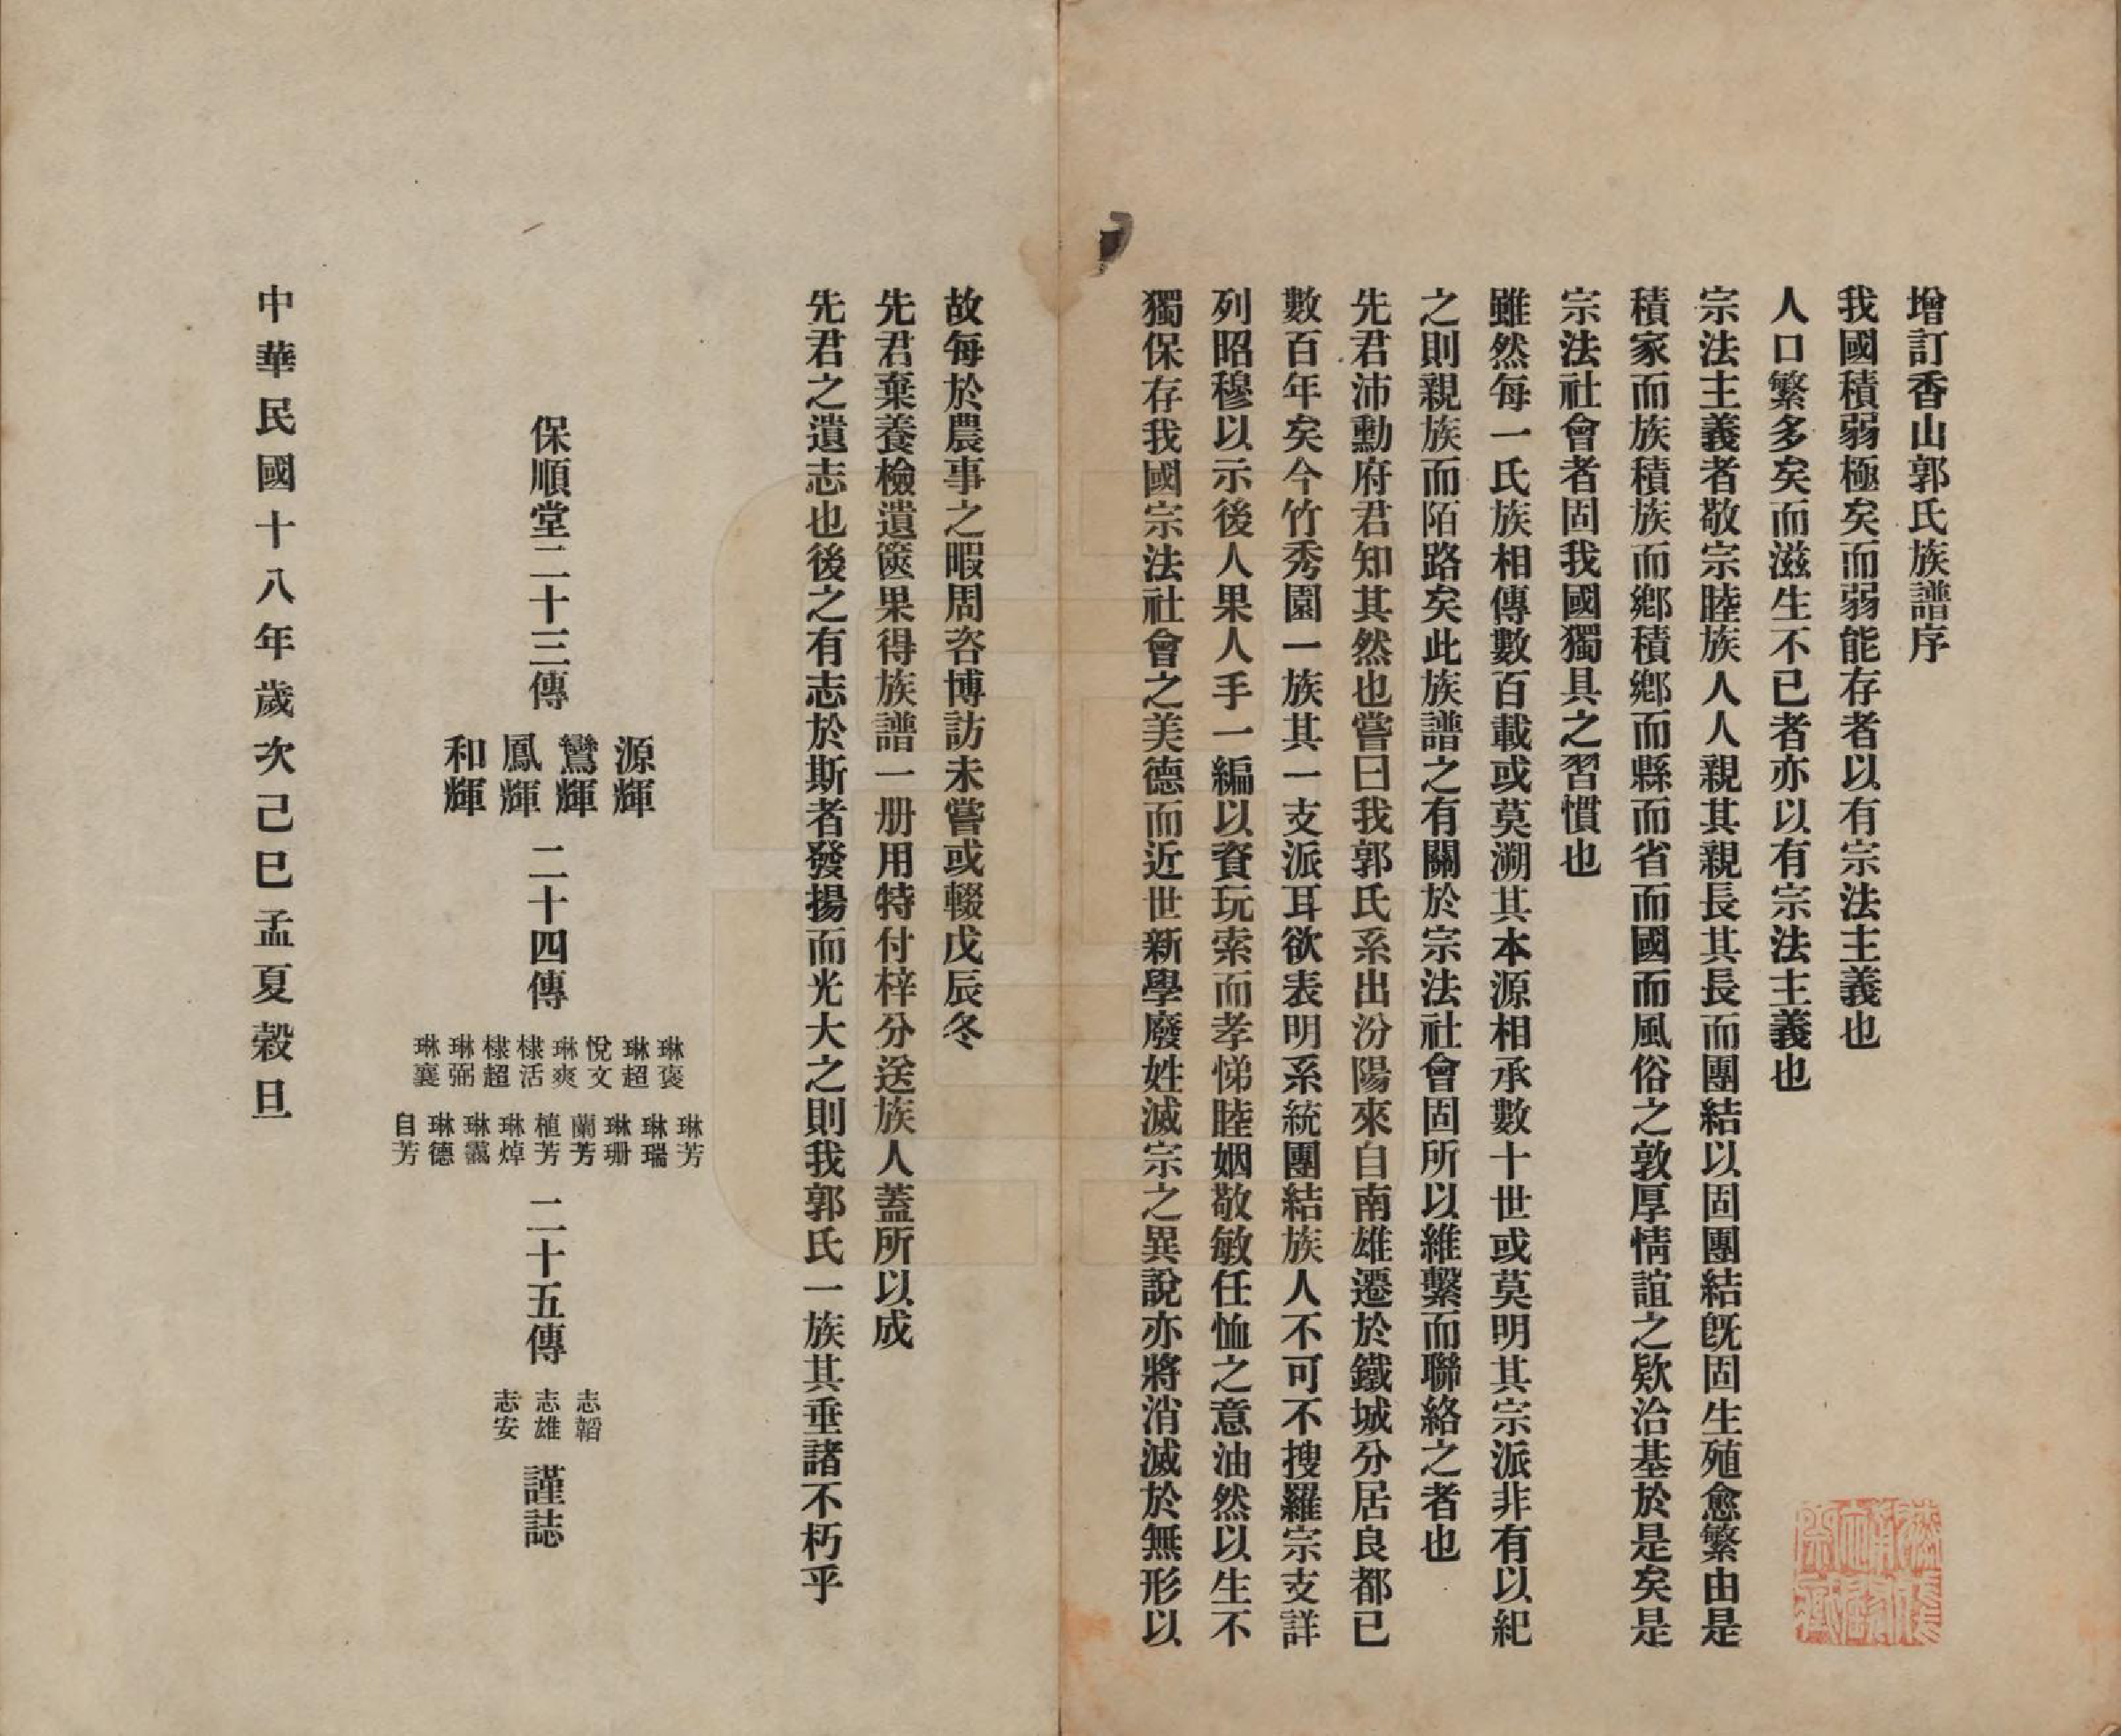 增訂香山郭氏族譜序
我國積弱極矣而弱能存者以有宗法主義也
人口繁多矣而滋生不已者亦以有宗法主義也
宗法主義者敬宗睦族人人親其親長其長而團結以固團結既固生殖愈繁由是
積家而族積族而鄉積鄉而縣而省而國而風俗之敦厚情誼之欵洽基於是矣是
宗法社會者固我國獨具之習慣也
雖然每一氏族相傳數百載或莫溯其本源相承數十世或莫明其宗派非有以紀
之則親族而陌路矣此族譜之有關於宗法社會固所以維繫而聯絡之者也
先君沛勳府君知其然也嘗曰我郭氏系出汾陽來自南雄遷於鐵城分居良都已
數百年矣今竹秀園一族其一支派耳欲表明系統團結族人不可不搜羅宗支詳
列昭穆以示後人果人手一編以資玩索而孝悌睦姻敬敏任恤之意油然以生不
獨保存我國宗法社會之美德而近世新學廢姓滅宗之異說亦將消滅於無形以
故每於農事之暇周咨博訪未嘗或輟戊辰冬
先君棄養檢遺篋果得族譜一册用特付梓分送族人蓋所以成
先君之遺志也後之有志於斯者發揚而光大之則我郭氏一族其垂諸不朽乎
保順堂二十三傳
源輝
鸞輝
鳳輝
和輝
二十四傳
琳褒
琳超
悅文
琳爽
棣活
棣超
琳弼
琳襄
琳芳
琳瑞
琳珊
蘭芳
植芳
琳焯
琳靄
琳德
自芳
二十五傳
志韜
志雄
志安
謹誌
中華民國十八年歲次己巳孟夏穀旦